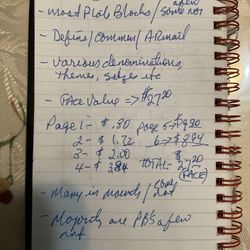 a few
- most Plate Blocks / some not
- Defins / comm / Airmail
- Various denominations,
themes, sizes etc
- Face value => $2720
Page 1 - $.30 page 5 =>
2 - 1.72 6 => $
3 - 2.00
4 - 3.84 TOTAL - $2720
(FACE)
- Many in mounts / some
not
- Majority are PBs a few
not